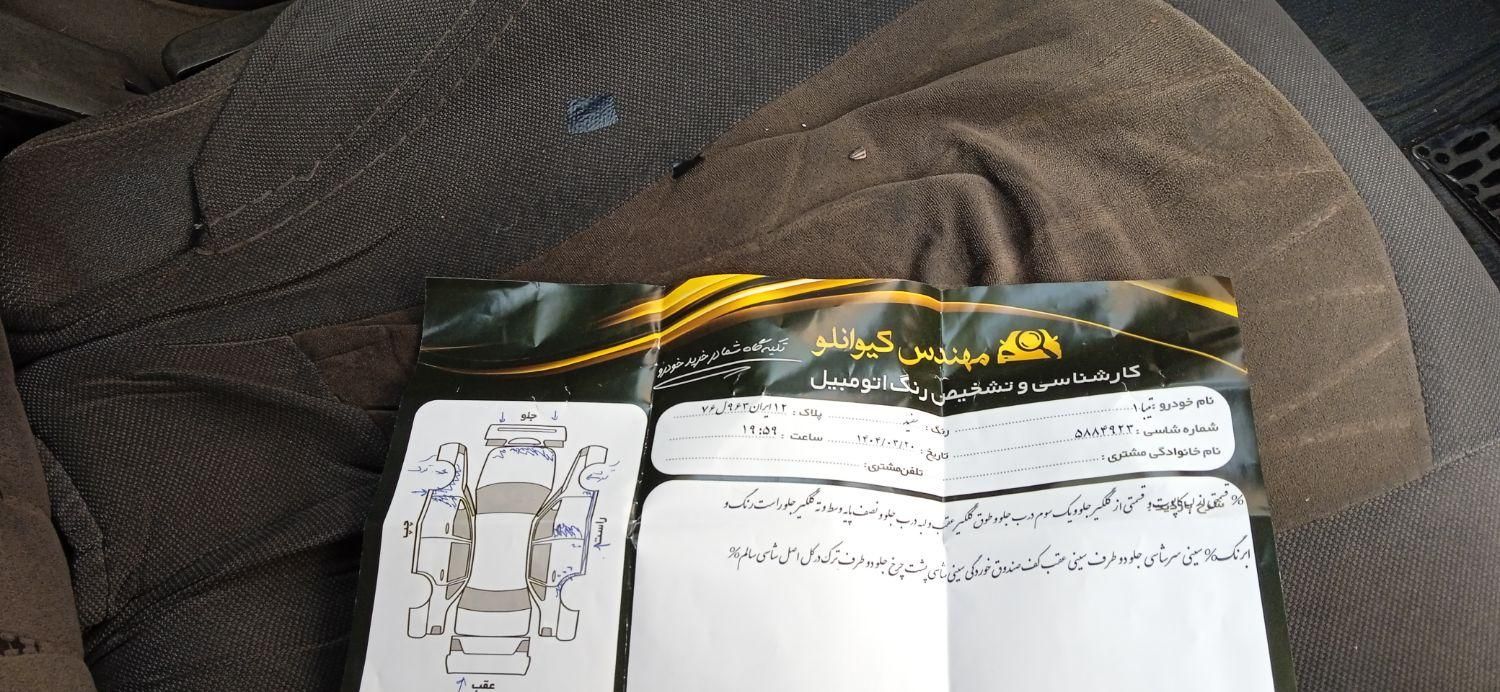 مهندس کیوانلو
تکیه گاه شما در خرید خودرو
کارشناسی و تشخیص رنگ اتومبیل
نام خودرو : تیبا ۱ رنگ : سفید پلاک : ۱۲ ایران ۹۶۳ ل ۷۶
شماره شاسی : ۵۸۸۴۹۲۳ تاریخ : ۱۴۰۴/۰۳/۲۰ ساعت : ۱۹:۵۹
نام خانوادگی مشتری : تلفن مشتری :
% قسمتی از لب کاپوت و قسمتی از گلگیر جلو و یک سوم درب جلو و طوق گلگیر عقب و لبه درب جلو و نصف پایه وسط و ته گلگیر جلو راست رنگ و
ابرنگ % سینی سرشاسی جلو دو طرف سینی عقب کف صندوق خوردگی سینی شاسی پشت چرخ جلو دو طرف ترک در کل اصل شاسی سالم %
جلو
چپ
راست
عقب